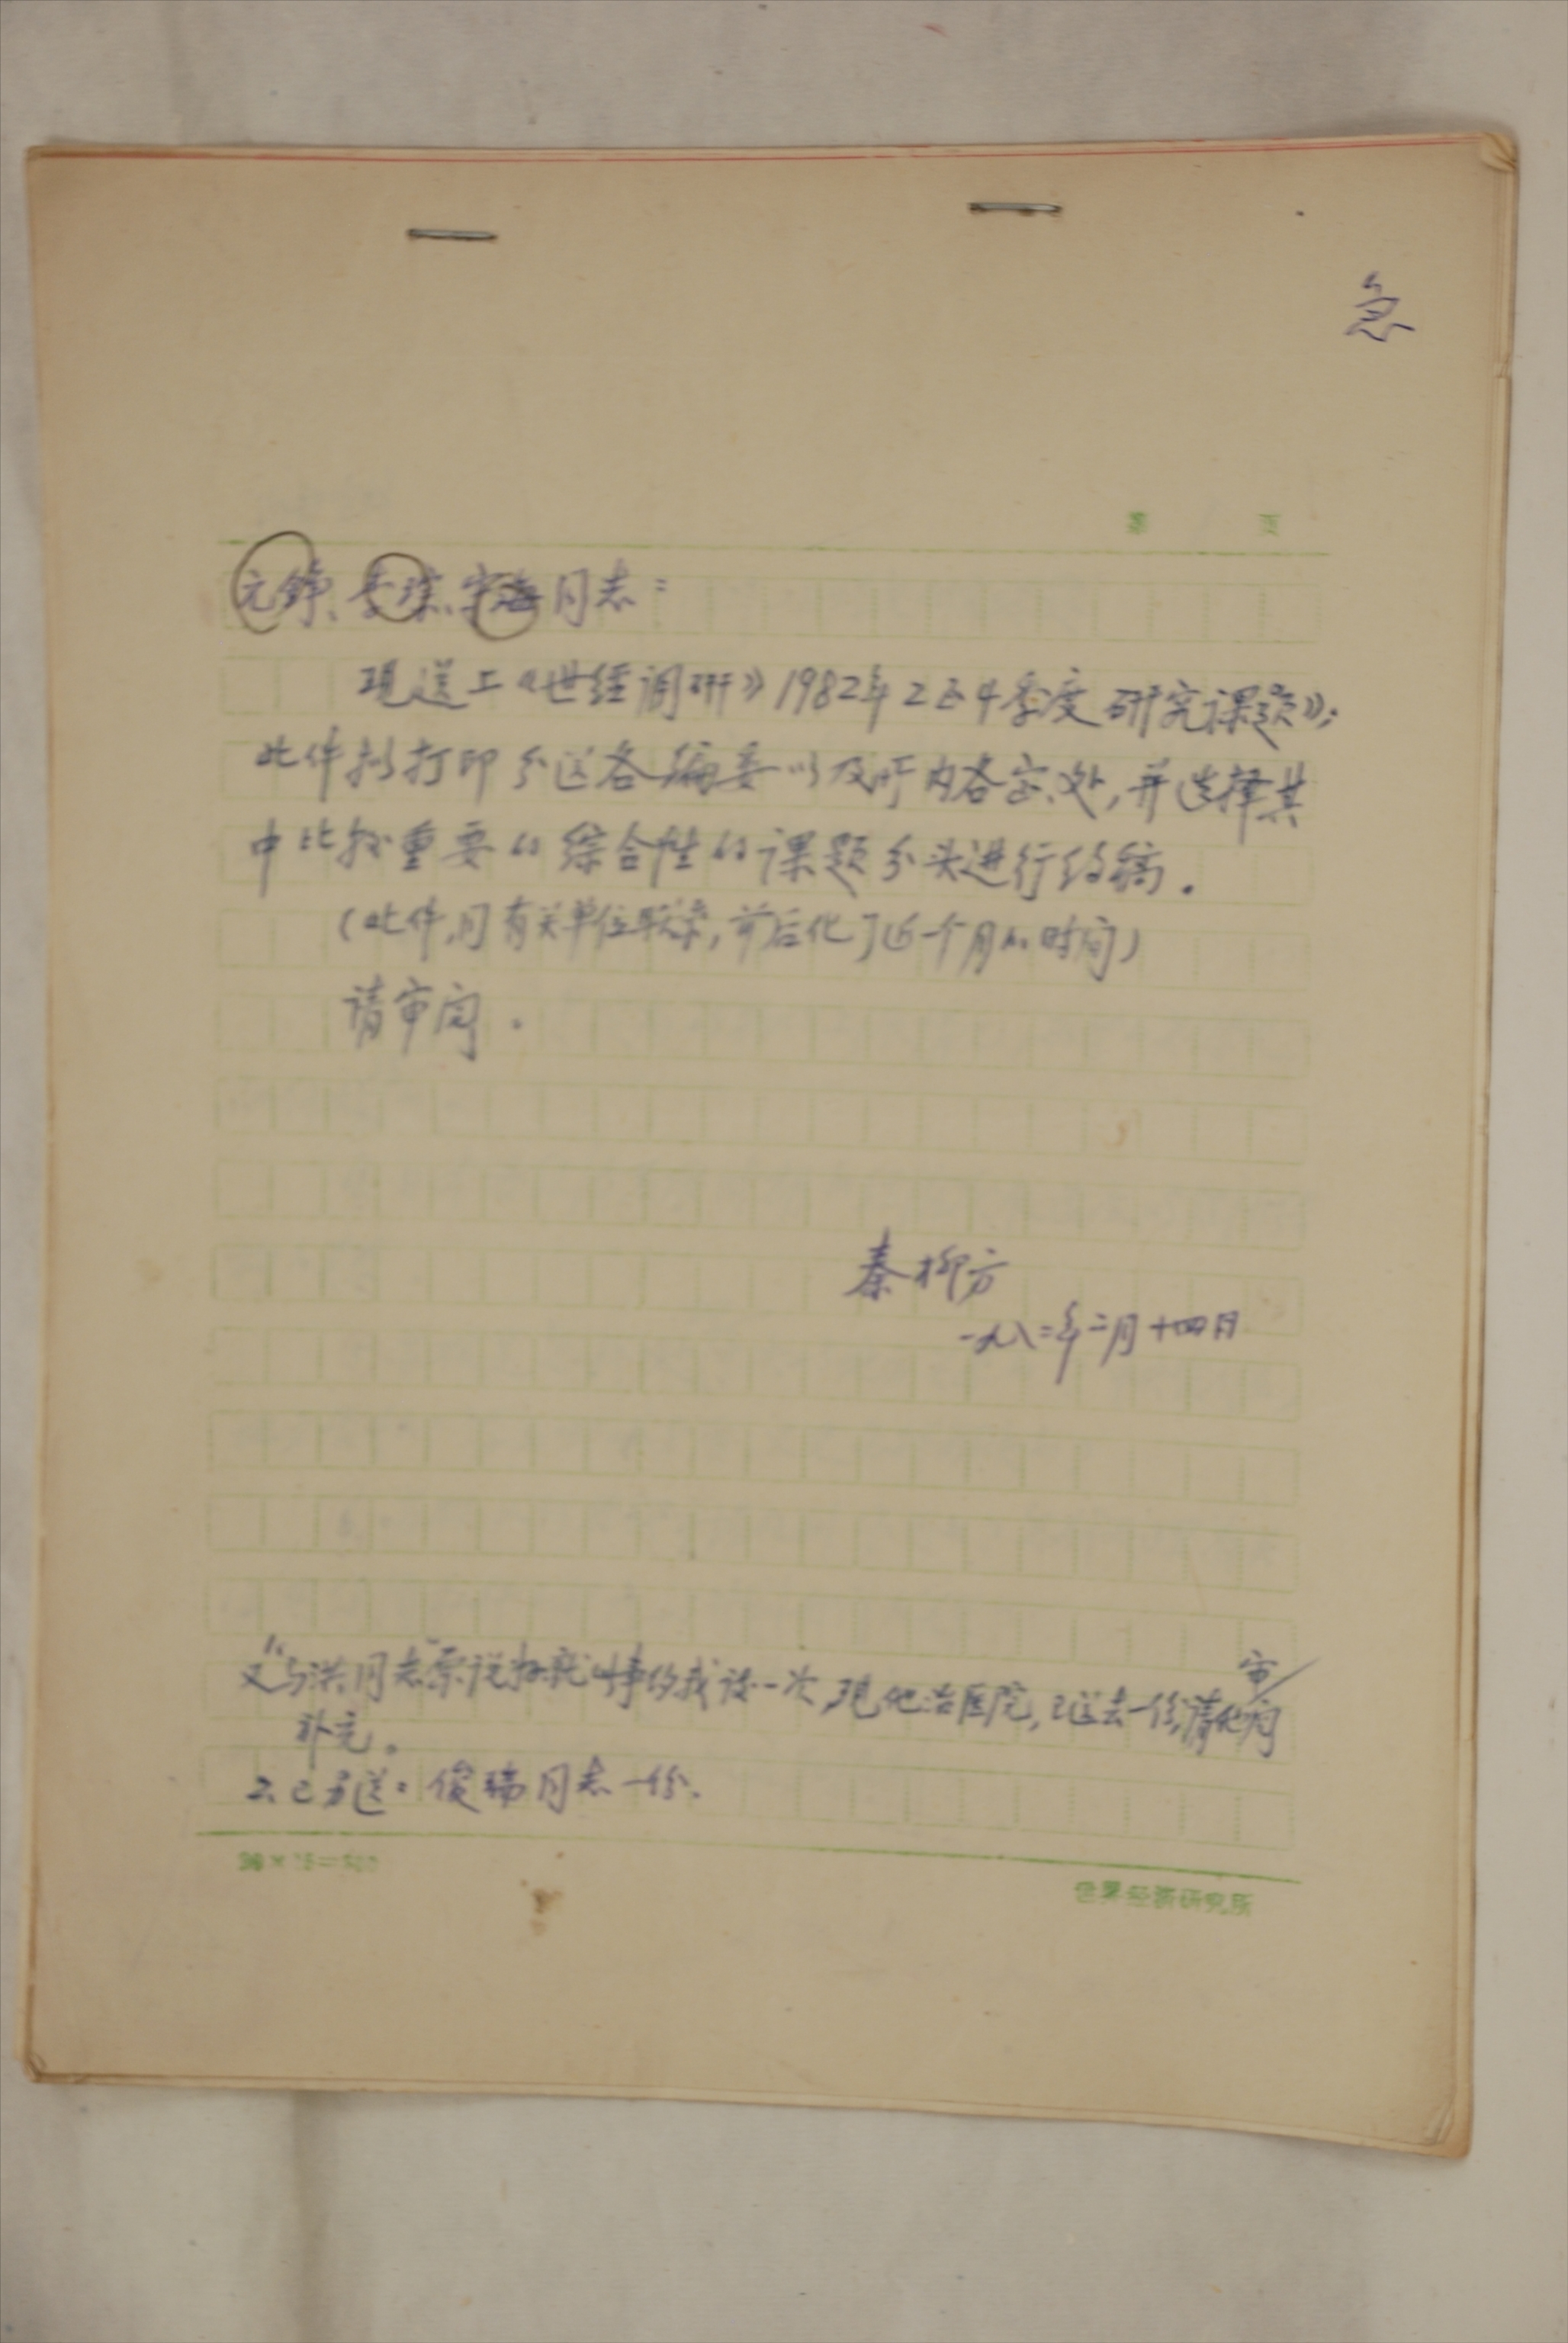 急
第 页
元铮、李琮、宇海同志：
现送上《世经调研》1982年2至4季度研究课题》；
此件拟打印分送各编委以及所内各室、处，并选择其
中比较重要的综合性的课题分头进行约稿。
（此件，同有关单位联系，前后化了近一个月的时间）
请审阅。
秦柳方
一九八二年二月十四日
同志原说拟就此事约我谈一次，现他治医院，已送去一份，请他审阅
补充。
2. 已另送：俊瑞同志一份。
20×15=300
世界经济研究所